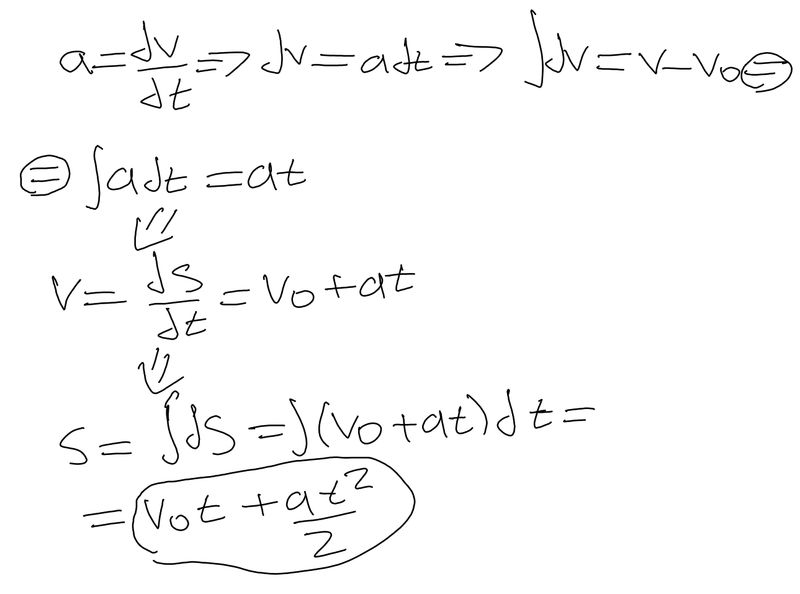 a = dv/dt => dv = a dt => ∫dv = v - v₀ ⊜
⊜ ∫a dt = at
⇓
v = ds/dt = v₀ + at
⇓
s = ∫ds = ∫(v₀ + at) dt =
= v₀t + at²/2